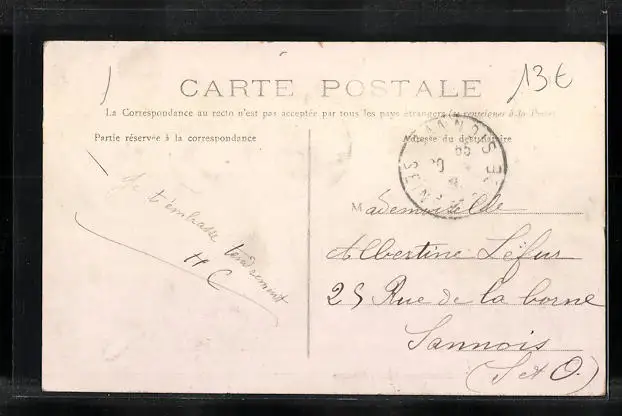 CARTE POSTALE
13€
La Correspondance au recto n'est pas acceptée par tous les pays étrangers (se renseigner à la Poste)
Partie réservée à la correspondance
Adresse du destinataire
SANNOIS
Je t'embrasse tendrement
HC
Mademoiselle
Albertine Lefur
25 Rue de la borne
Sannois
(S et O.)